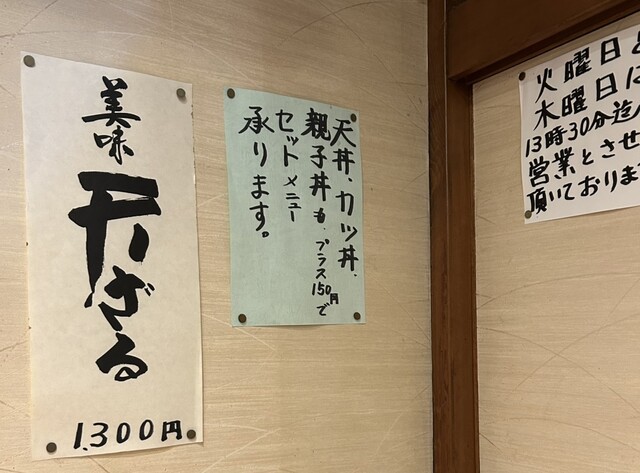 美味
天ざる
1,300円
天丼、カツ丼、
親子丼も、プラス150円で
セットメニュー
承ります。
火曜日と
木曜日に
13時30分迄
営業とさせ
頂いておりま